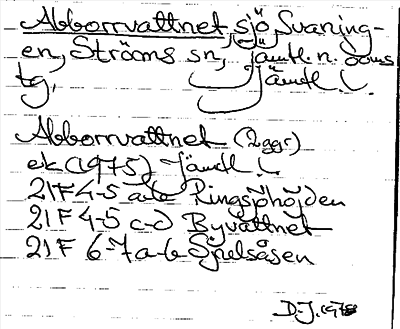 Abborrvattnet, sjö, Svaning-
en, Ströms sn, Jämtl. n. doms
tg, Jämtl. L.
Abborrvattnet (2ggr)
ek (1975) Jämtl. L
21F 4-5 a-b Ringsjöhöjden
21F 4-5 c-d Byvattnet
21F 6-7 a-b Sjulsåsen
D-J. 1978